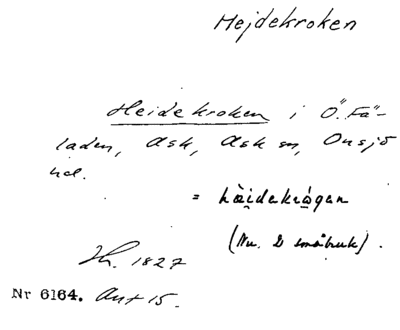 Hejdekroken
Heidekroken i Ö. Fä-
laden, Ask, Ask sn, Onsjö
hd.
= hàidekrågen
(Nu. 2 småbruk).
1827
Nr 6164. Ant 15.